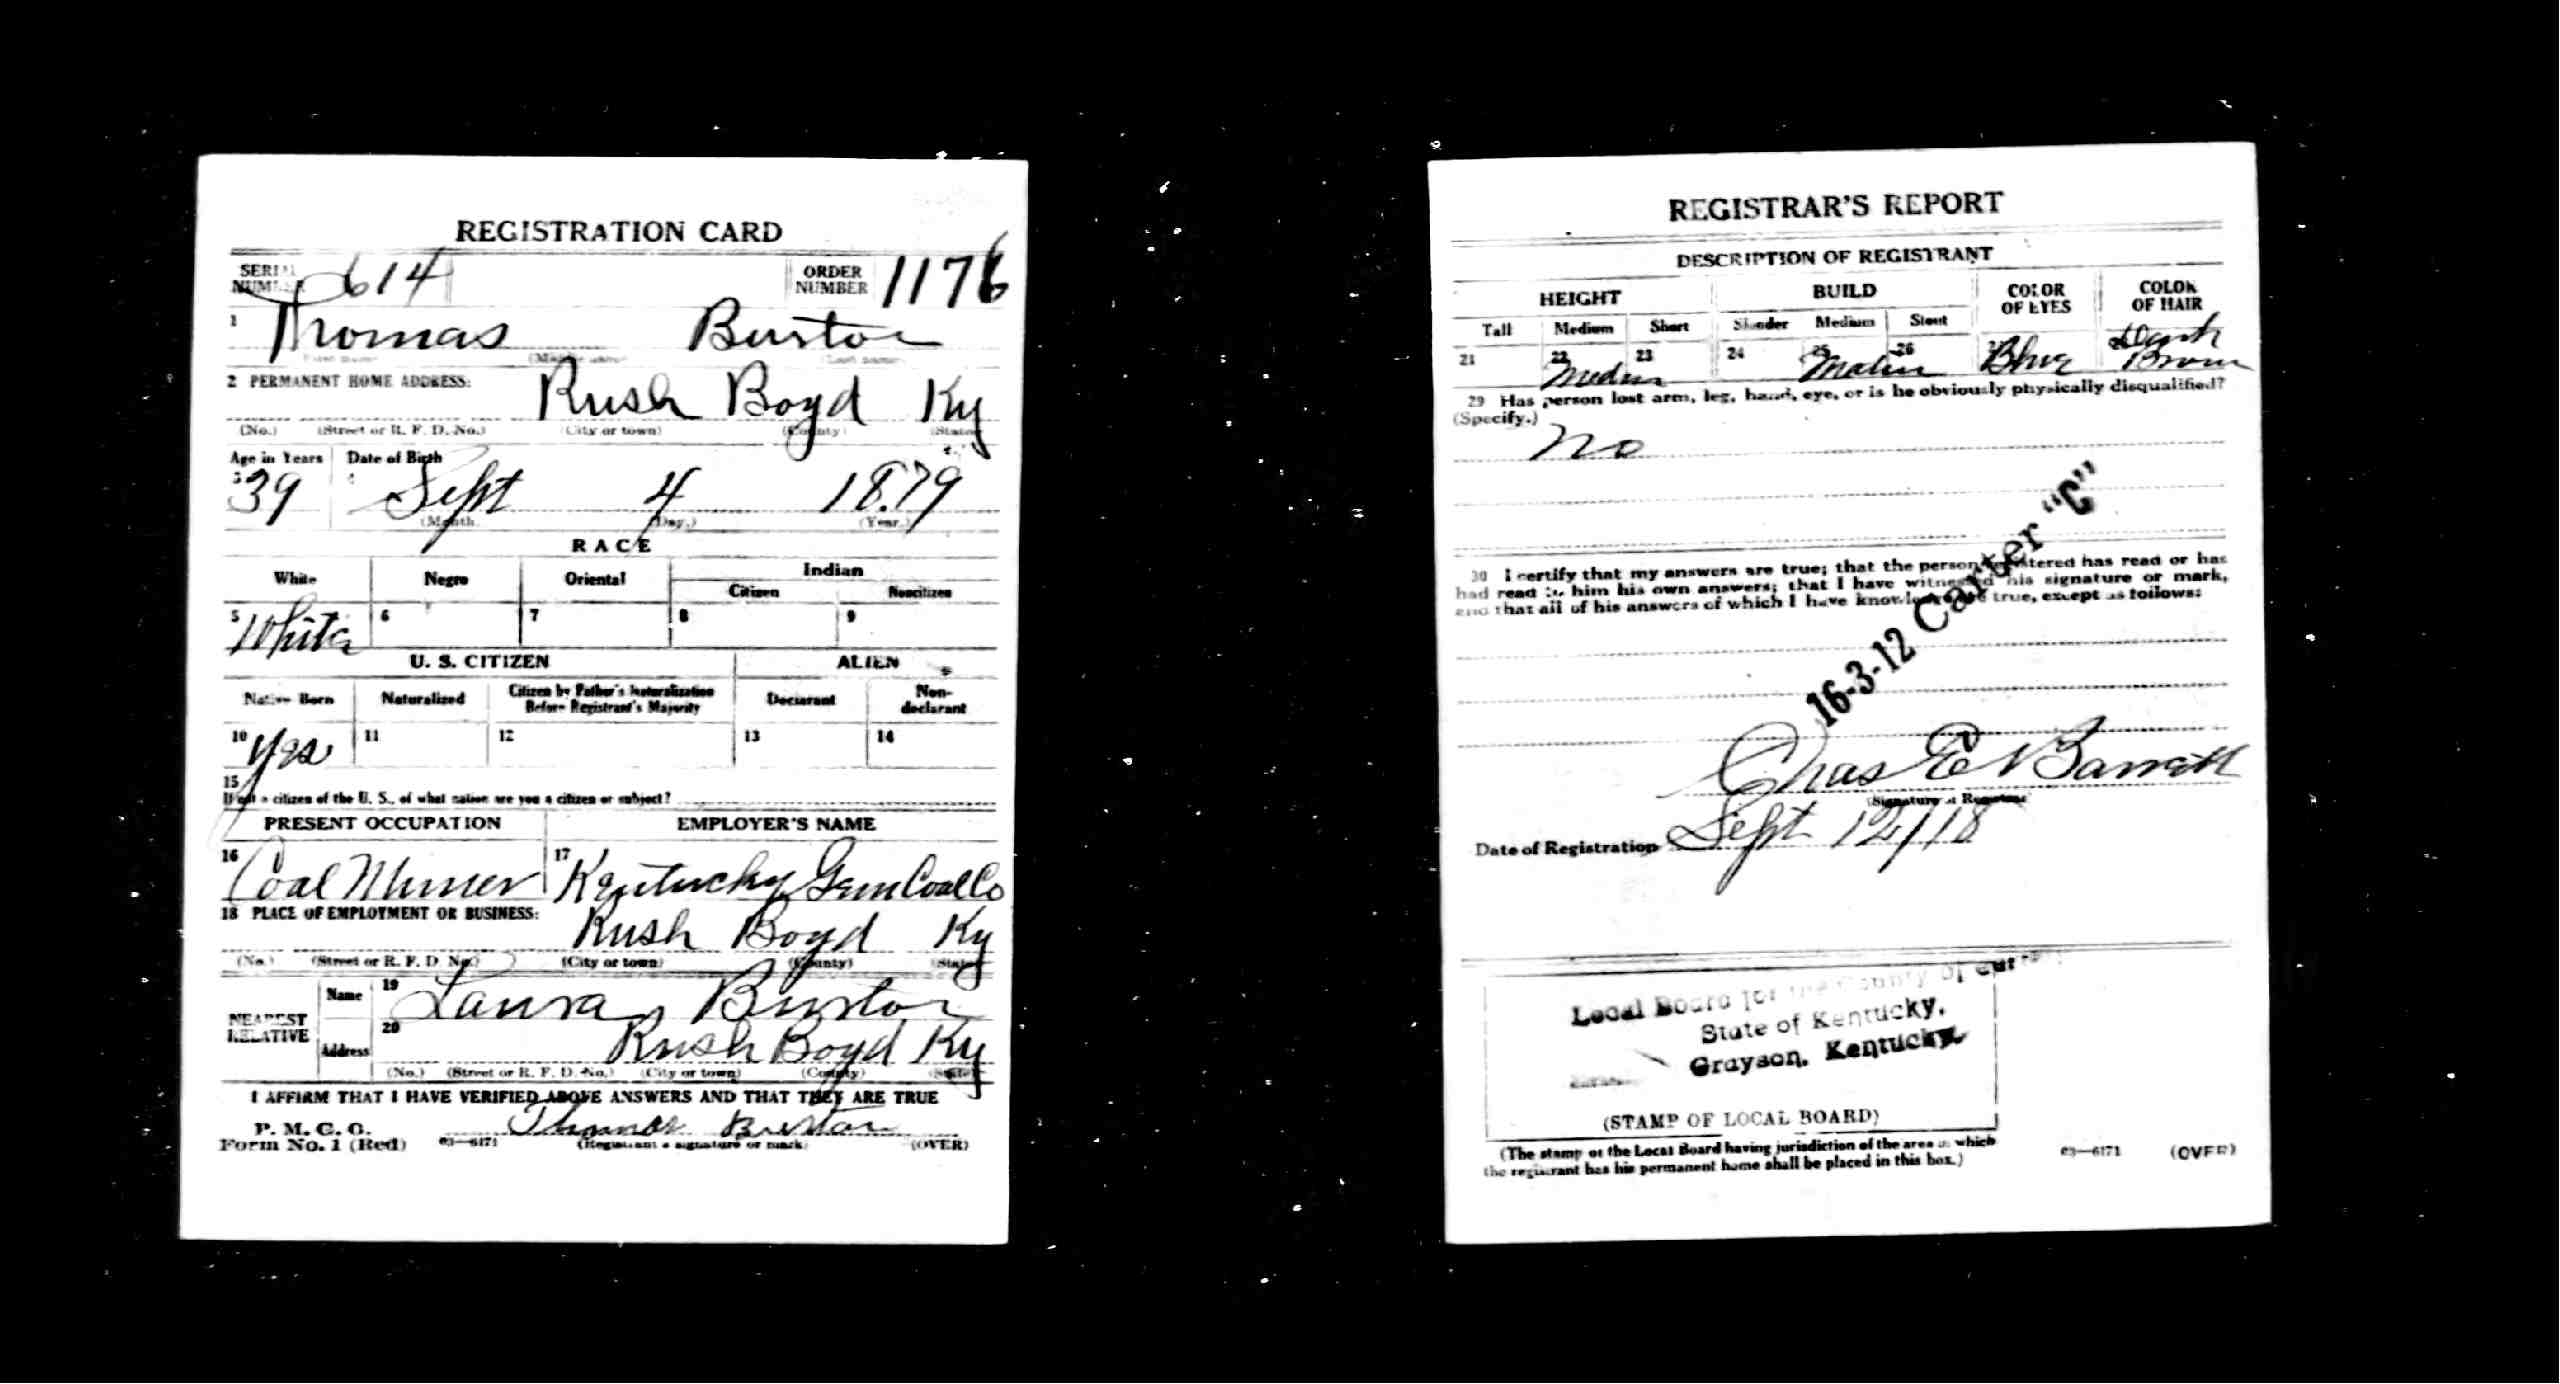 REGISTRATION CARD
SERIAL NUMBER 614 ORDER NUMBER 1176
1 Thomas Burton
(First name) (Middle name) (Last name)
2 PERMANENT HOME ADDRESS: Rush Boyd Ky
(No.) (Street or R. F. D. No.) (City or town) (County) (State)
Age in Years Date of Birth
39 Sept 4 1879
(Month.) (Day.) (Year.)
RACE
White Negro Oriental Indian
Citizen Noncitizen
5 White 6 7 8 9
U. S. CITIZEN ALIEN
Native Born Naturalized Citizen by Father's Naturalization Before Registrant's Majority Declarant Non-declarant
10 Yes 11 12 13 14
15
If not a citizen of the U. S., of what nation are you a citizen or subject?
PRESENT OCCUPATION EMPLOYER'S NAME
16 Coal Miner 17 Kentucky Gem Coal Co
18 PLACE OF EMPLOYMENT OR BUSINESS:
Rush Boyd Ky
(No.) (Street or R. F. D. No.) (City or town) (County) (State)
NEAREST RELATIVE Name 19 Laura Burton
Address 20 Rush Boyd Ky
(No.) (Street or R. F. D. No.) (City or town) (County) (State)
I AFFIRM THAT I HAVE VERIFIED ABOVE ANSWERS AND THAT THEY ARE TRUE
P. M. G. O.
Form No. 1 (Red) 03—6171 Thomas Burton
(Registrant's signature or mark) (OVER)
REGISTRAR'S REPORT
DESCRIPTION OF REGISTRANT
HEIGHT BUILD COLOR OF EYES COLOR OF HAIR
Tall Medium Short Slender Medium Stout
21 22 Medium 23 24 25 26 Blue Dark Brown
29 Has person lost arm, leg, hand, eye, or is he obviously physically disqualified?
(Specify.)
No
30 I certify that my answers are true; that the person registered has read or has
had read to him his own answers; that I have witnessed his signature or mark,
and that all of his answers of which I have knowledge are true, except as follows:
16-3-12 Carter "C"
Chas E Barrett
(Signature of Registrar)
Date of Registration Sept 12/18
Local Board for the County of
State of Kentucky,
Grayson, Kentucky.
(STAMP OF LOCAL BOARD)
(The stamp of the Local Board having jurisdiction of the area in which
the registrant has his permanent home shall be placed in this box.)
03—6171 (OVER)